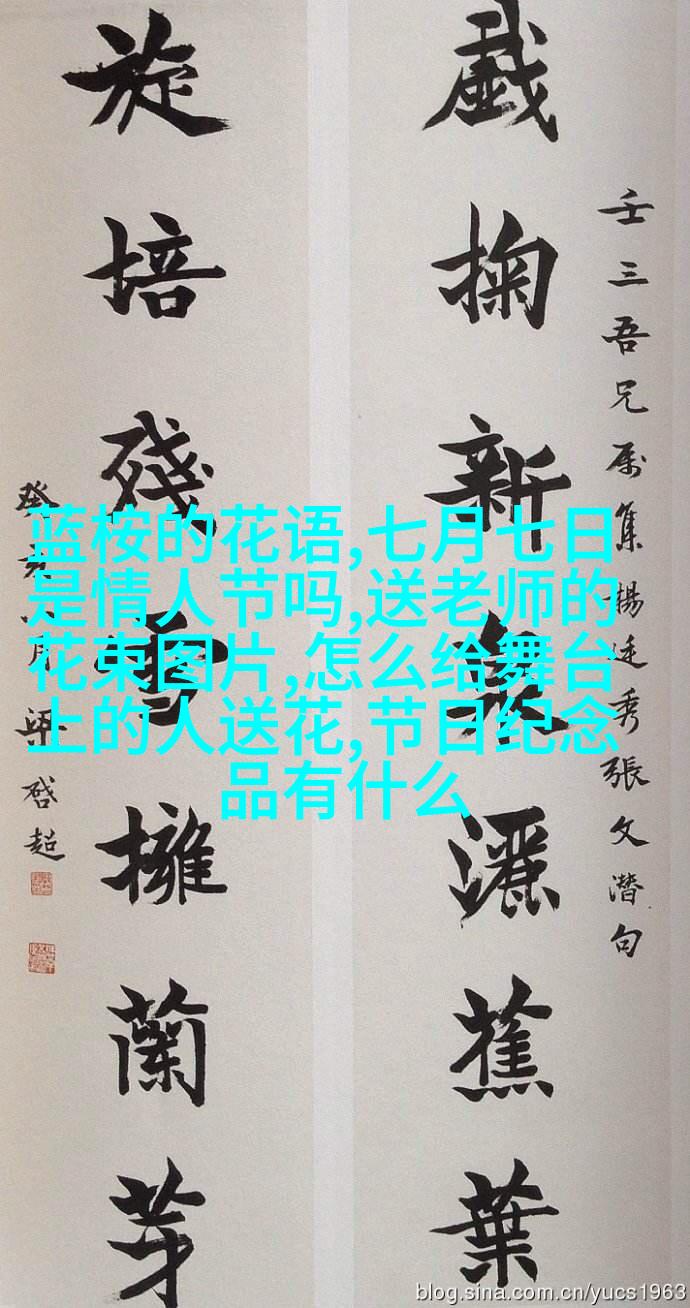 壬三吾兄属集楊廷秀張文潛句
戲掬新泉灑蕉葉
旋培殘雪擁蘭芽
癸亥月梁啓超
蓝桉的花语,七月七日
是情人节吗,送老师的
花束图片,怎么给舞台
上的人送花,节日纪念
品有什么
blog.sina.com.cn/yucs1963